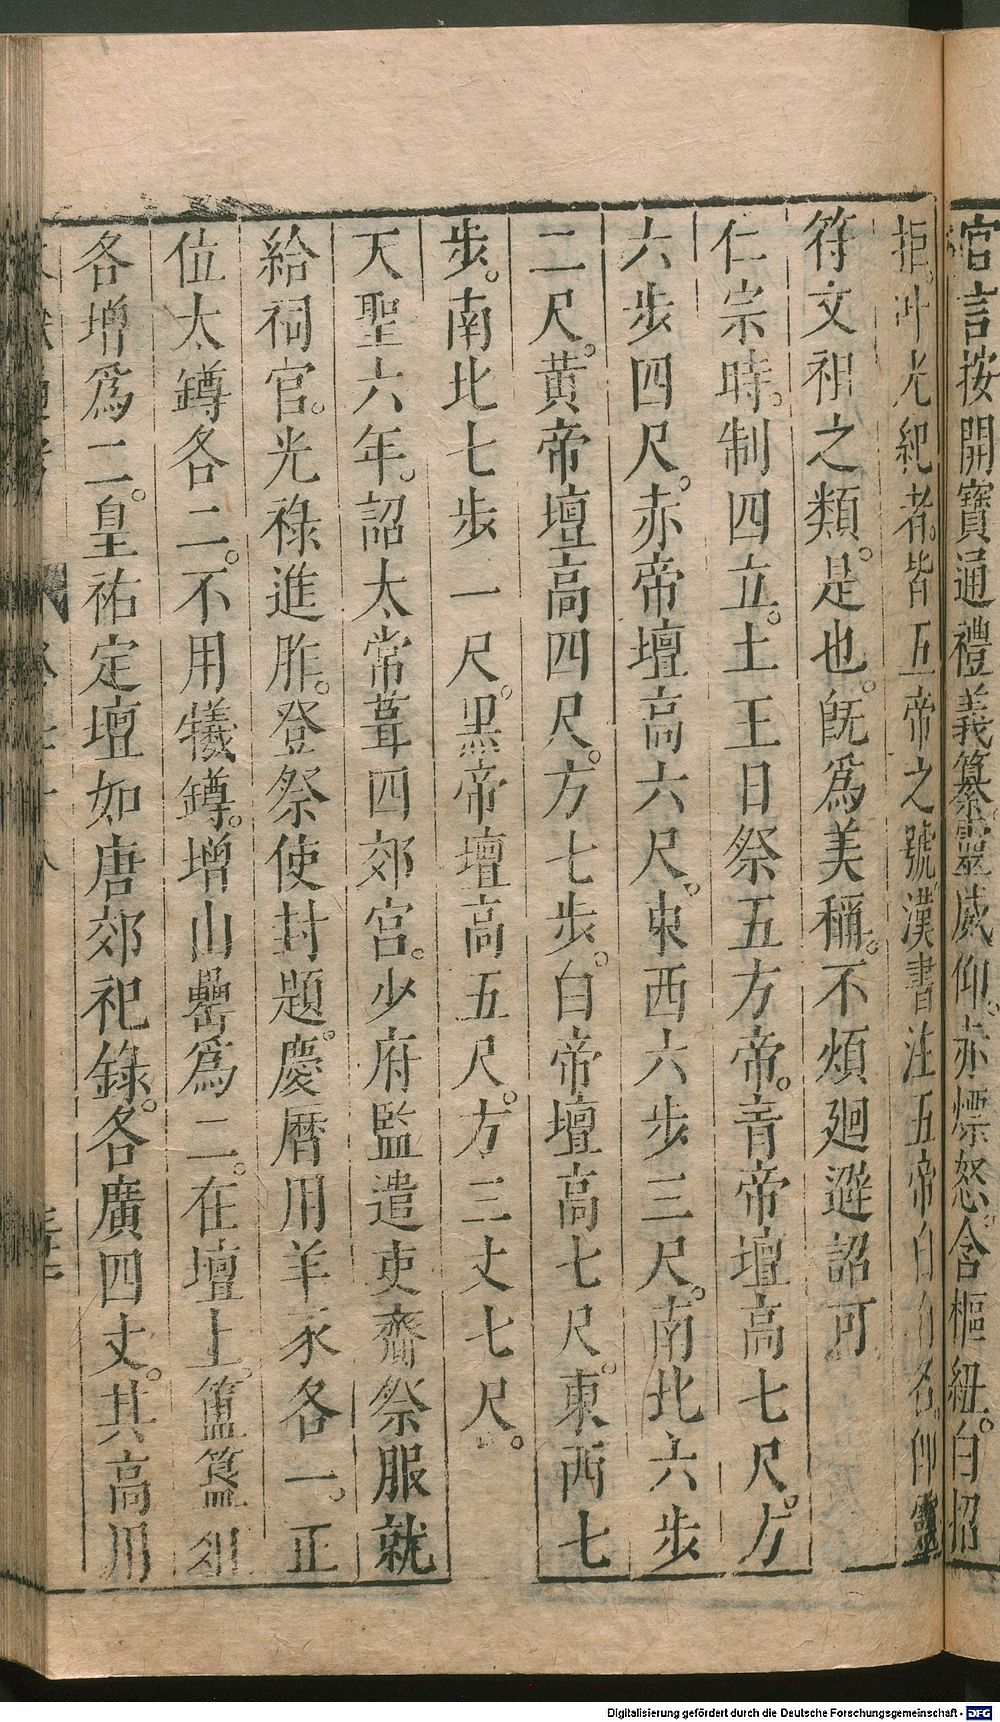 官言按開寶通禮義纂靈威仰。赤熛怒。含樞紐。白招
拒。叶光紀者。皆五帝之號。漢書注五帝自有名。仰靈
符文祖之類。是也。旣爲美稱。不煩廻避詔可
仁宗時。制四立。土王日祭五方帝。青帝壇高七尺。方
六步四尺。赤帝壇高六尺。東西六步三尺。南北六步
二尺。黄帝壇高四尺。方七步。白帝壇高七尺。東西七
步。南北七步一尺。黑帝壇高五尺。方三丈七尺。
天聖六年。詔太常葺四郊宮。少府監遣吏齋祭服就
給祠官。光祿進胙。登祭使封題。慶曆用羊豕各一。正
位太罇各二。不用犧罇。增山罍爲二。在壇上。簠簋俎
各增爲二。皇祐定壇如唐郊祀錄。各廣四丈。其高用